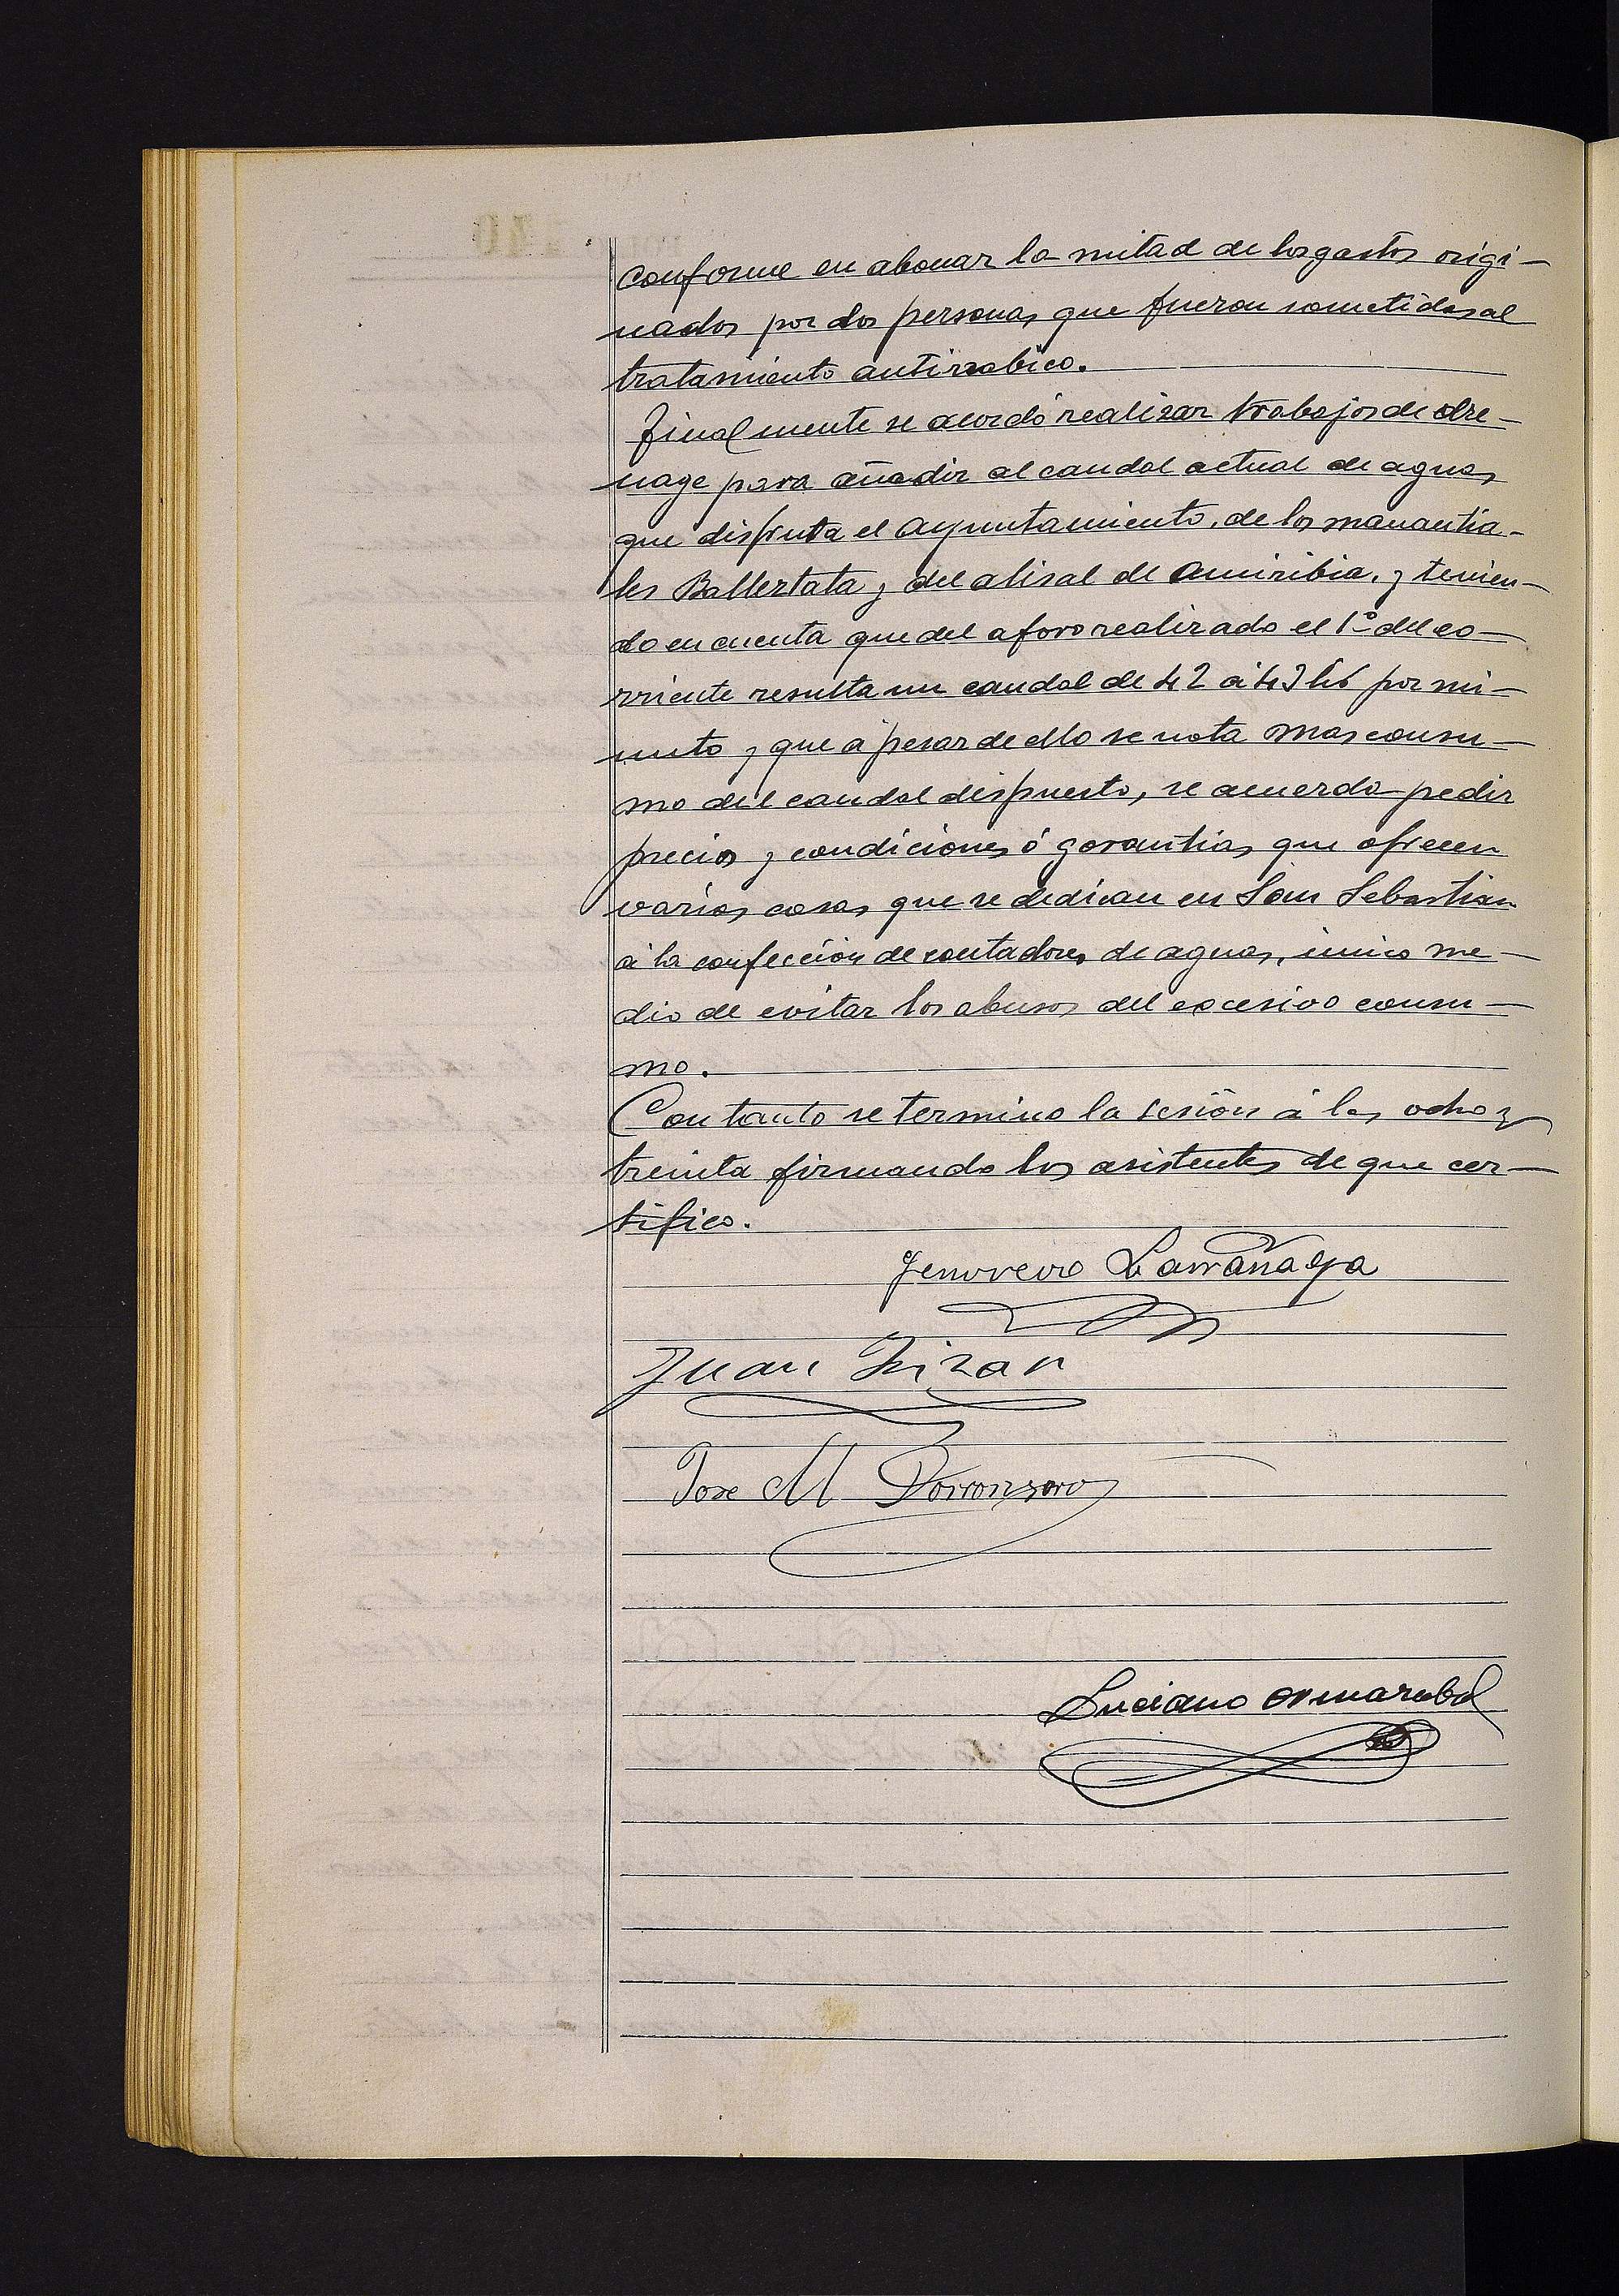 conforme en abonar la mitad de los gastos origi-
nados por dos personas que fueron sometidas al
tratamiento antirrabico.
Finalmente se acordó realizar trabajos de dre-
nage para añadir al caudal actual de aguas
que disfruta el Ayuntamiento, de los manantia-
les Ballertata y del alisal de Amiribia, y tenien-
do en cuenta que del aforo realizado el 1º del co-
rriente resulta un caudal de 42 á 43 lts por mi-
nuto y que á pesar de ello se nota mas consu-
mo del caudal dispuesto, se acuerda pedir
precios y condiciones ó garantias que ofrecen
varias casas que se dedican en San Sebastian
á la confección de contadores de aguas, único me-
dio de evitar los abusos del excesivo consu-
mo.
Con tanto se termino la sesión á las ocho y
treinta firmando los asistentes de que cer-
tifico.
Larrañaga
Juan Irizar
Jose M Dorronsoro
Luciano Ormazabal